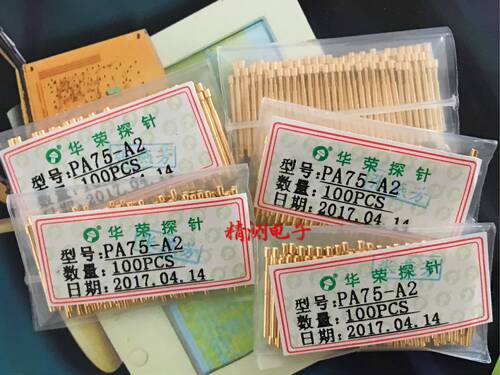 华荣探针
型号:PA75-A2
数量:100PCS
日期:2017.04.14
华荣探针
型号:PA75-A2
数量:100PCS
日期:2017.04.14
华荣探针
型号:PA75-A2
数量:100PCS
日期:2017.04.14
精测电子
华荣探针
型号:PA75-A2
数量:100PCS
日期:2017.04.14